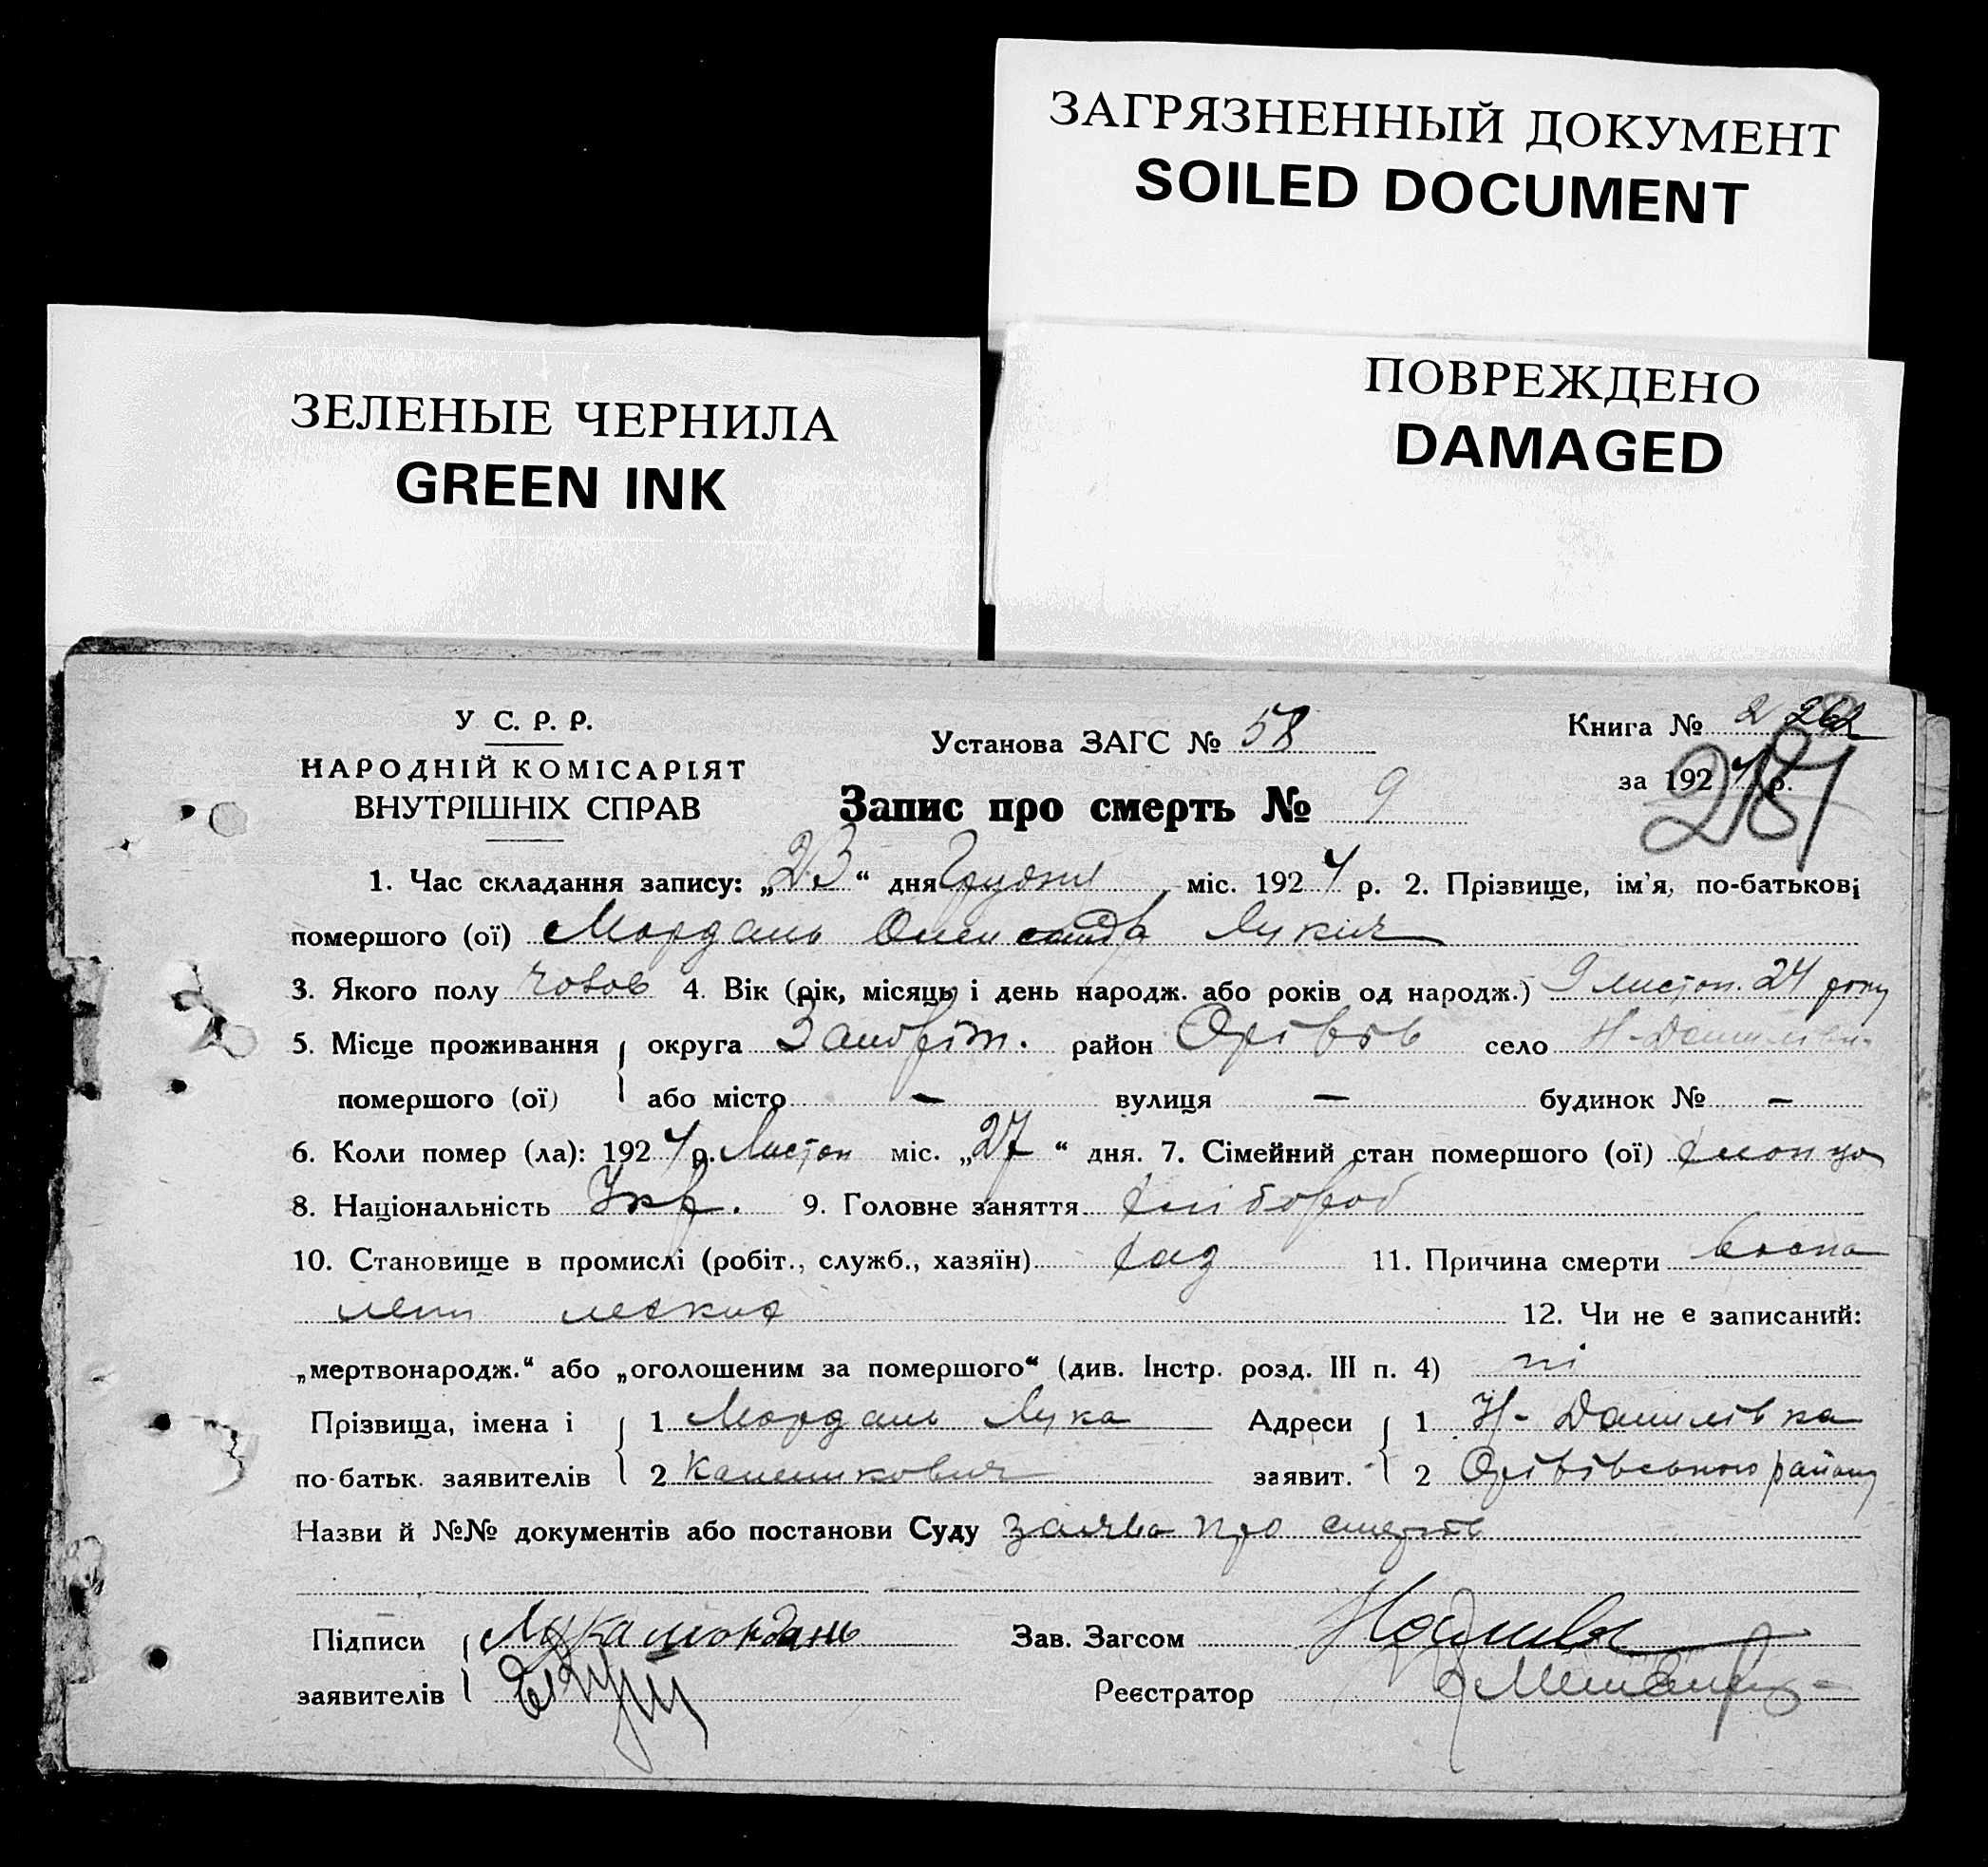 ЗАГРЯЗНЕННЫЙ ДОКУМЕНТ
SOILED DOCUMENT
ПОВРЕЖДЕНО
DAMAGED
ЗЕЛЕНЫЕ ЧЕРНИЛА
GREEN INK
У С. Р. Р.
НАРОДНІЙ КОМІСАРІЯТ
ВНУТРІШНІХ СПРАВ
Установа ЗАГС № 58
Книга № 2
за 1924 р.
Запис про смерть № 9
1. Час складання запису: „23“ дня Грудня міс. 1924 р. 2. Прізвище, ім'я, по-батькові
помершого (ої) Мордань Олександр Лукич
3. Якого полу чолов 4. Вік (рік, місяць і день народж. або років од народж.) 9 листоп. 24 року
5. Місце проживання округа Запоріж. район Оріхів село Н-Данилівк.
помершого (ої) або місто — вулиця — будинок № —
6. Коли помер (ла): 1924 р. Листоп міс. „27“ дня. 7. Сімейний стан помершого (ої)
8. Національність Укр. 9. Головне заняття хлібороб
10. Становище в промислі (робіт., служб., хазяїн) хаз 11. Причина смерти воспа
лени легких 12. Чи не є записаний:
„мертвонародж.“ або „оголошеним за помершого“ (див. Інстр. розд. III п. 4) ні
Прізвища, імена і 1 Мордань Лука Адреси 1 Н-Данилівка
по-батьк. заявителів 2 заявит. 2 Оріхівського району
Назви й №№ документів або постанови Суду заява про смерть
Підписи Лука мордань Зав. Загсом
заявителів Реєстратор